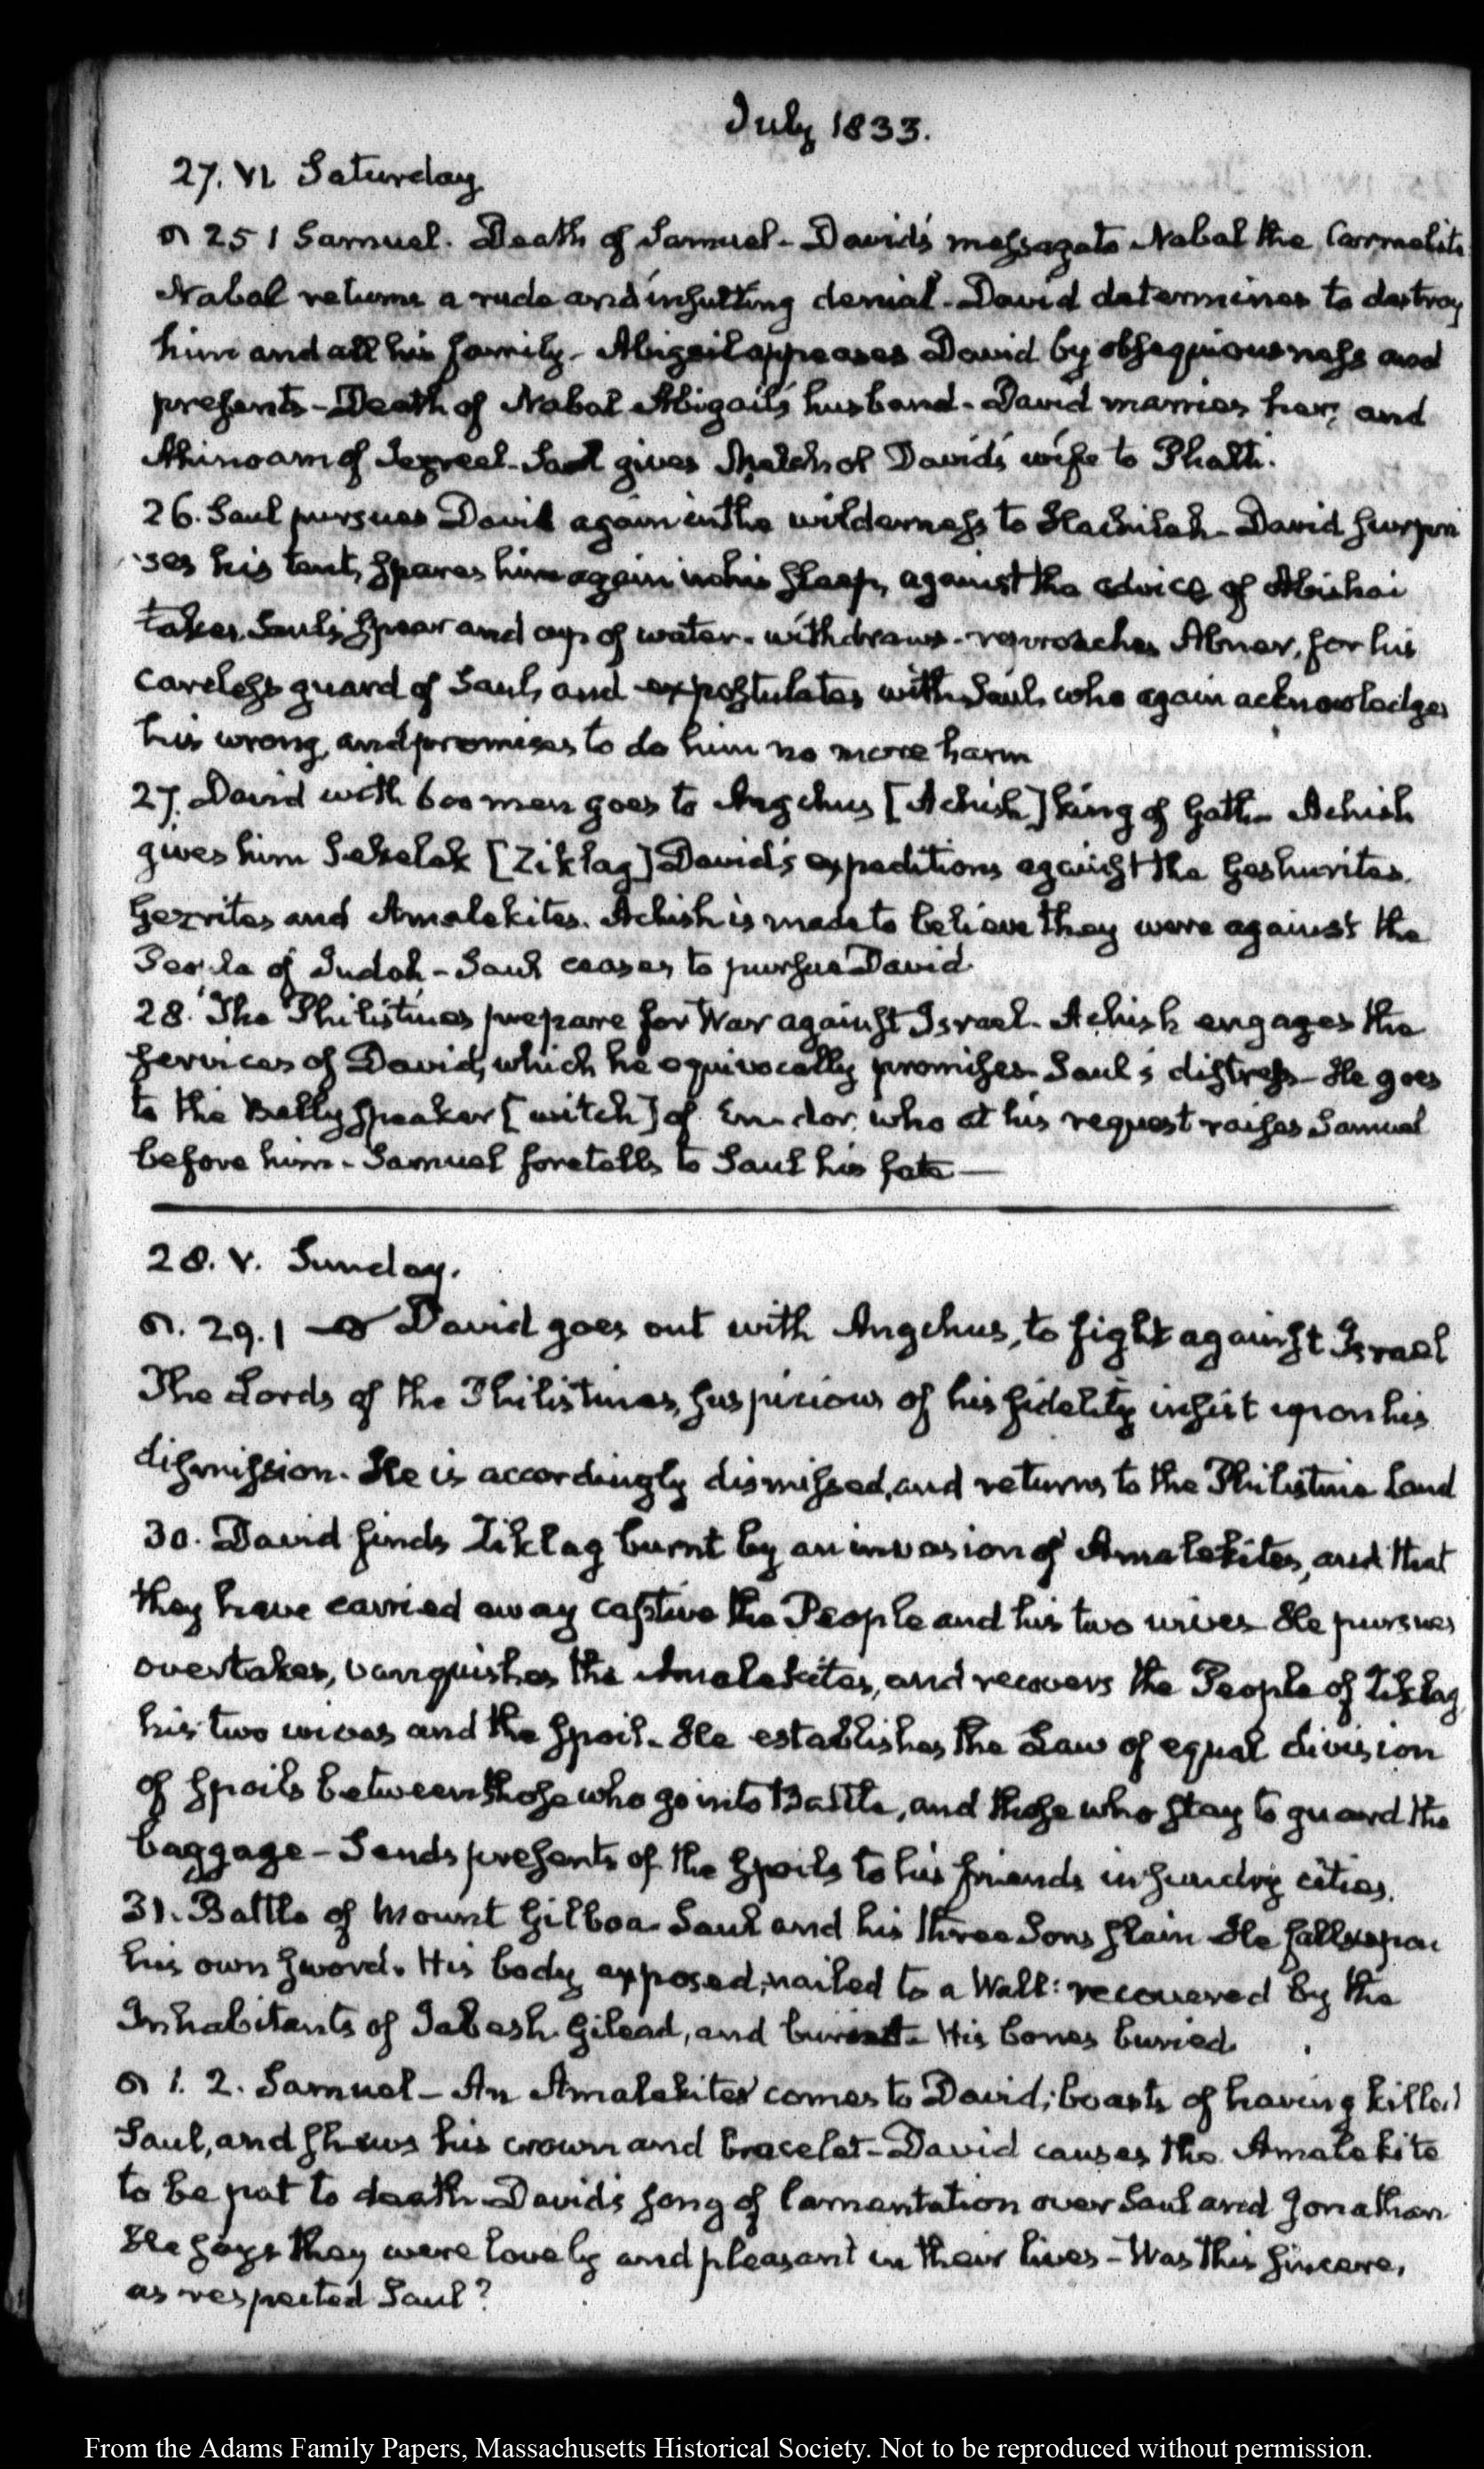 July 1833.
27. VI. Saturday
25 1 Samuel. Death of Samuel - David's message to Nabal the Carmelite
Nabal returns a rude and insulting denial - David determines to destroy
him and all his family - Abigail appeases David by obsequiousness and
presents - Death of Nabal Abigail's husband - David marries her, and
Ahinoam of Jezreel - Saul gives Melchol David's wife to Phalti.
26. Saul pursues David again in the wilderness to Hachilah - David surpri
ses his tent, spares him again in his sleep, against the advice of Abishai
takes Saul's spear and cup of water - withdraws - reproaches Abner, for his
careless guard of Saul, and expostulates with Saul, who again acknowledges
his wrong, and promises to do him no more harm
27. David with 600 men goes to Angchus [Achish] king of Gath - Achish
gives him Sekelak [Ziklag] David's expeditions against the Geshurites.
Gezrites and Amalekites. Achish is made to believe they were against the
People of Judah - Saul ceases to pursue David
28. The Philistines prepare for War against Israel - Achish engages the
services of David, which he equivocally promises - Saul's distress - He goes
to the Belly speaker [witch] of En-dor, who at his request raises Samuel
before him - Samuel foretells to Saul his fate —
28. V. Sunday.
29. 1 David goes out with Angchus, to fight against Israel
The Lords of the Philistines, suspicious of his fidelity insist upon his
dismission. He is accordingly dismissed, and returns to the Philistine Land
30. David finds Ziklag burnt by an invasion of Amalekites, and that
they have carried away captive the People and his two wives - He pursues
overtakes, vanquishes the Amalekites, and recovers the People of Ziklag,
his two wives and the spoil - He establishes the Law of equal division
of spoils between those who go into Battle, and those who stay to guard the
baggage - Sends presents of the spoils to his friends in sundry cities.
31. Battle of Mount Gilboa - Saul and his three Sons slain - He falls upon
his own sword. His body exposed, nailed to a Wall: recovered by the
Inhabitants of Jabesh-Gilead, and burnt - His bones buried.
1. 2. Samuel - An Amalekite comes to David; boasts of having killed
Saul, and shews his crown and bracelet - David causes the Amalekite
to be put to death - David's song of lamentation over Saul and Jonathan
He says they were lovely and pleasant in their lives - Was this sincere,
as respected Saul?
From the Adams Family Papers, Massachusetts Historical Society. Not to be reproduced without permission.